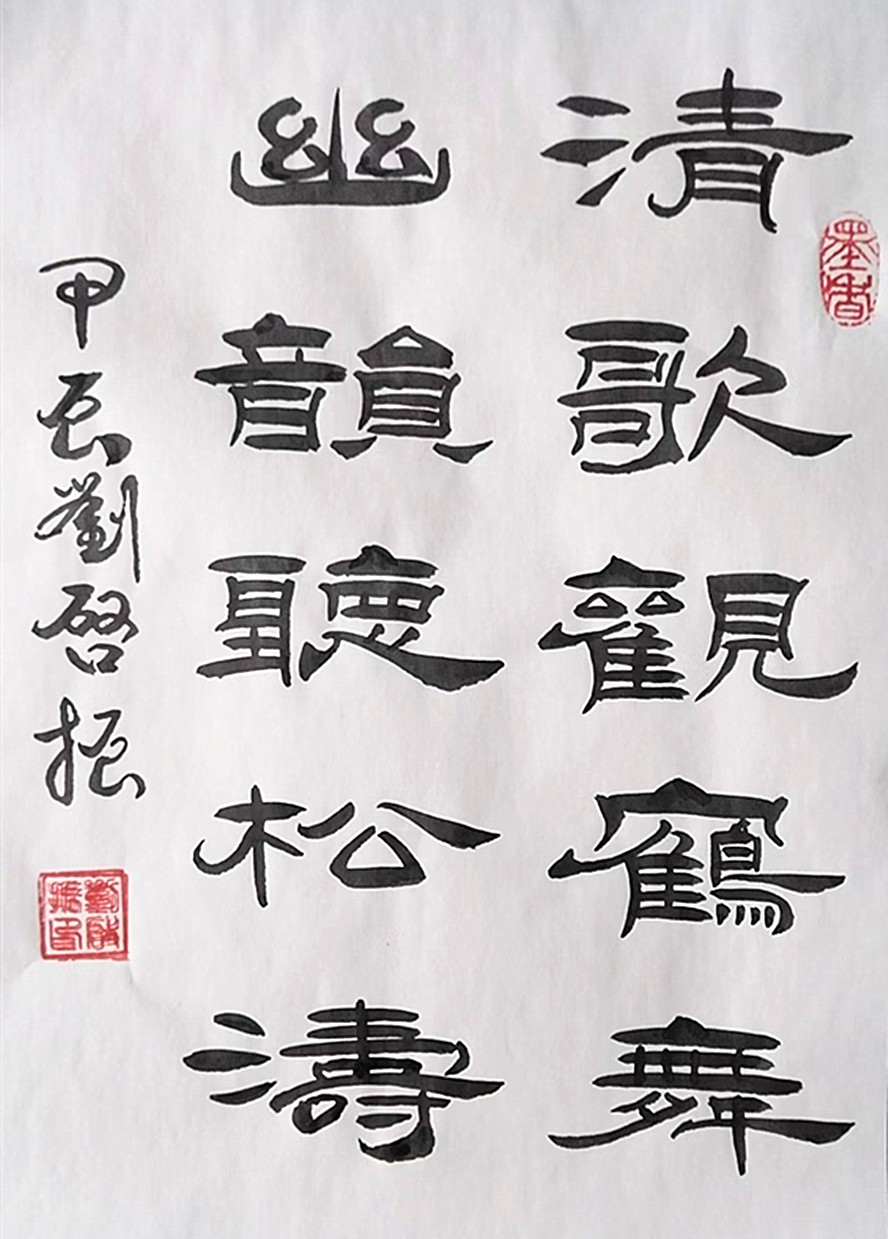 清歌觀鶴舞
幽韻聽松濤
甲辰劉啓振
墨香
劉啟振印